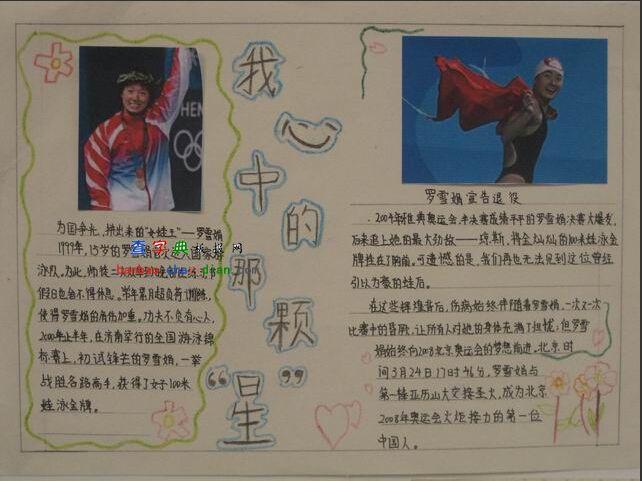 我心中的那颗“星”
为国争光,拼出来的“女蛙王”——罗雪娟
1997年,13岁的罗雪娟
国家游
泳队。为此,她
假日也会不得休息。常年累月超负荷训练,
使得罗雪娟的肩伤加重,功夫不负有心人,
2000年上半年,在济南举行的全国游泳锦
标赛上,初试锋芒的罗雪娟,一举
战胜名路高手,获得了女子100米
蛙泳金牌。
查字典手抄报网
罗雪娟宣告退役
2004年雅典奥运会,半决赛成绩平平的罗雪娟决赛大爆发,
后来追上她的最大劲敌——琼斯,将金灿灿的100米蛙泳金
牌挂在了胸前。可遗憾的是,我们再也无法见到这位曾经
引以为豪的蛙后。
在这些辉煌背后,伤病始终伴随着罗雪娟,一次又一次
比赛中的昏厥,让所有人对她的身体充满了担忧;但罗雪
娟始终向2008北京奥运会的梦想前进。北京时
间3月24日17时46分,罗雪娟与
第一棒亚历山大交接圣火,成为北京
2008年奥运会火炬接力的第一位
中国人。